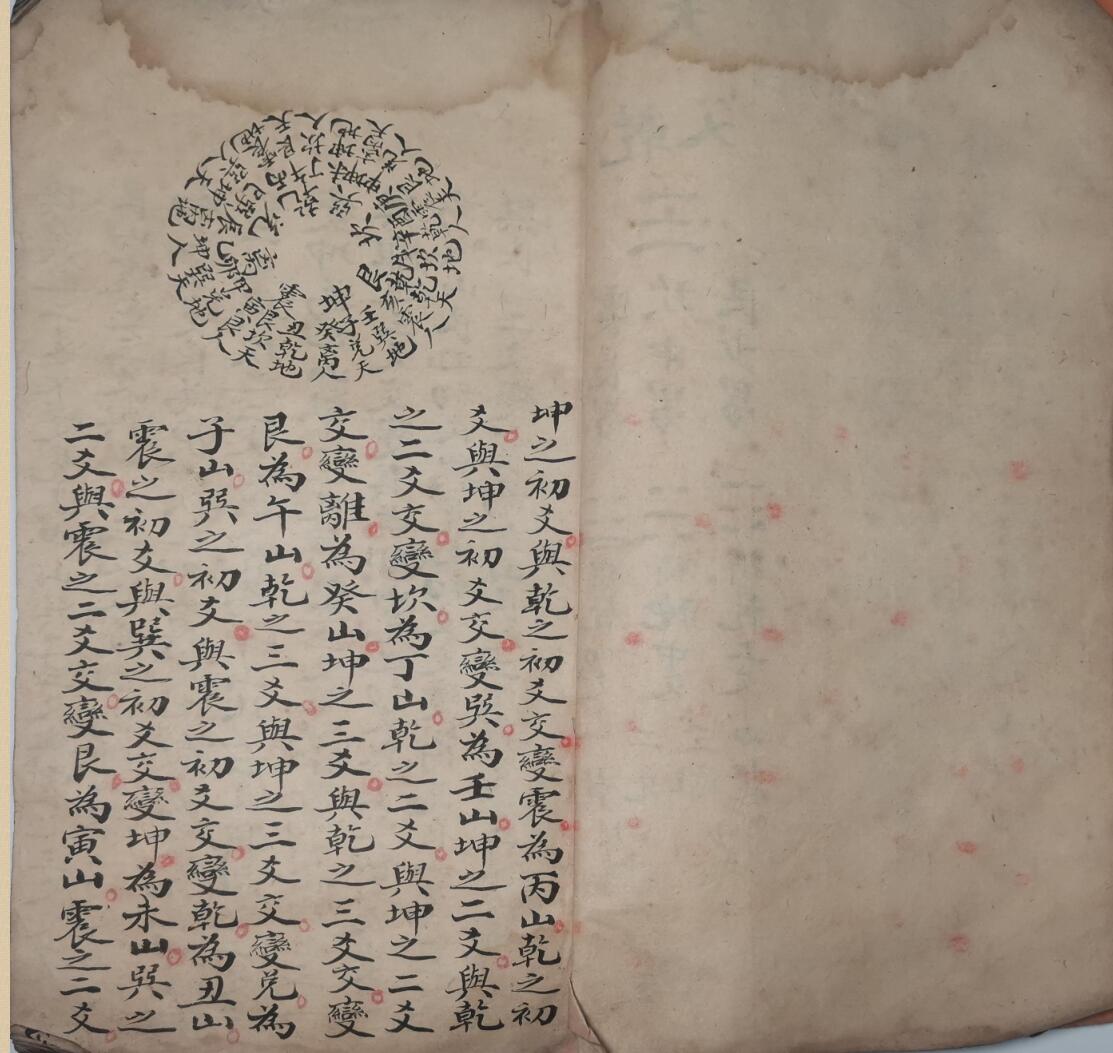 坤
震
離
兌
乾
巽
坎
艮
壬巽地
子兌天
癸离人
丑乾地
艮坎天
寅艮人
坤之初爻與乾之初爻交變震為丙山乾之初
爻與坤之初爻交變巽為壬山坤之二爻與乾
之二爻交變坎為丁山乾之二爻與坤之二爻
交變離為癸山坤之三爻與乾之三爻交變
艮為午山乾之三爻與坤之三爻交變兌為
子山巽之初爻與震之初爻交變乾為丑山
震之初爻與巽之初爻交變坤為未山巽之
二爻與震之二爻交變艮為寅山震之二爻